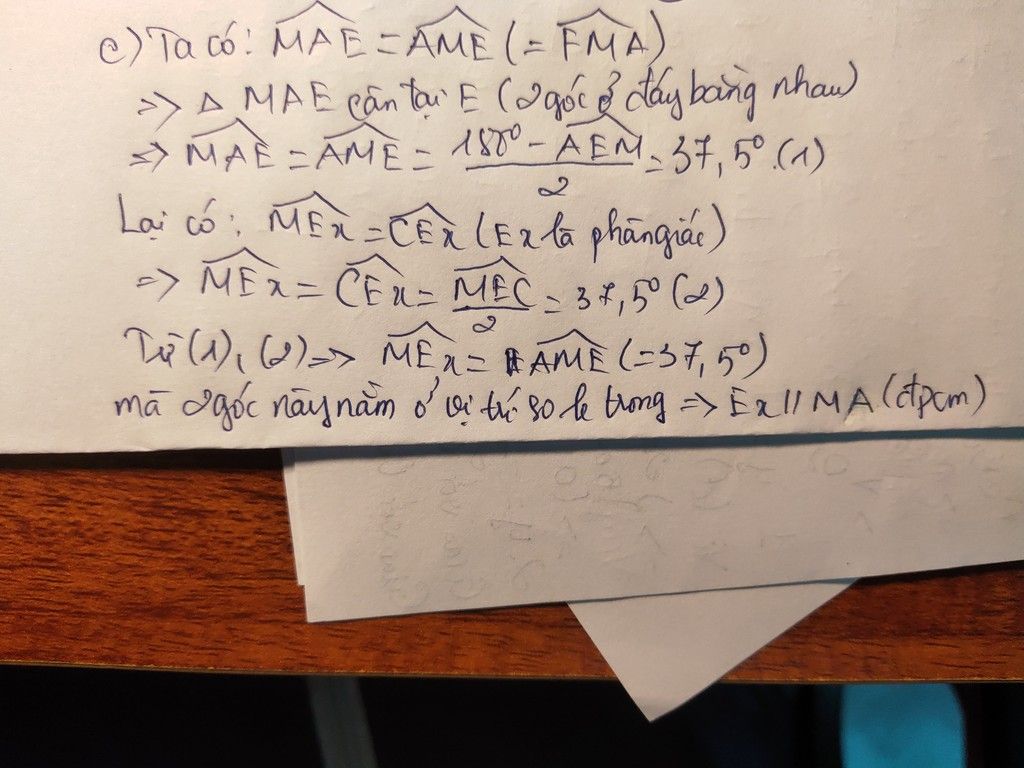 c) Ta có: MAE = AME (= FMA)
=> Δ MAE cân tại E (2 góc ở đáy bằng nhau)
=> MAE = AME = (180° - AEM)/2 = 37,5°. (1)
Lại có: MEx = CEx (Ex là phân giác)
=> MEx = CEx = MEC/2 = 37,5° (2)
Từ (1), (2) => MEx = AME (= 37,5°)
mà 2 góc này nằm ở vị trí so le trong => Ex // MA (đpcm)